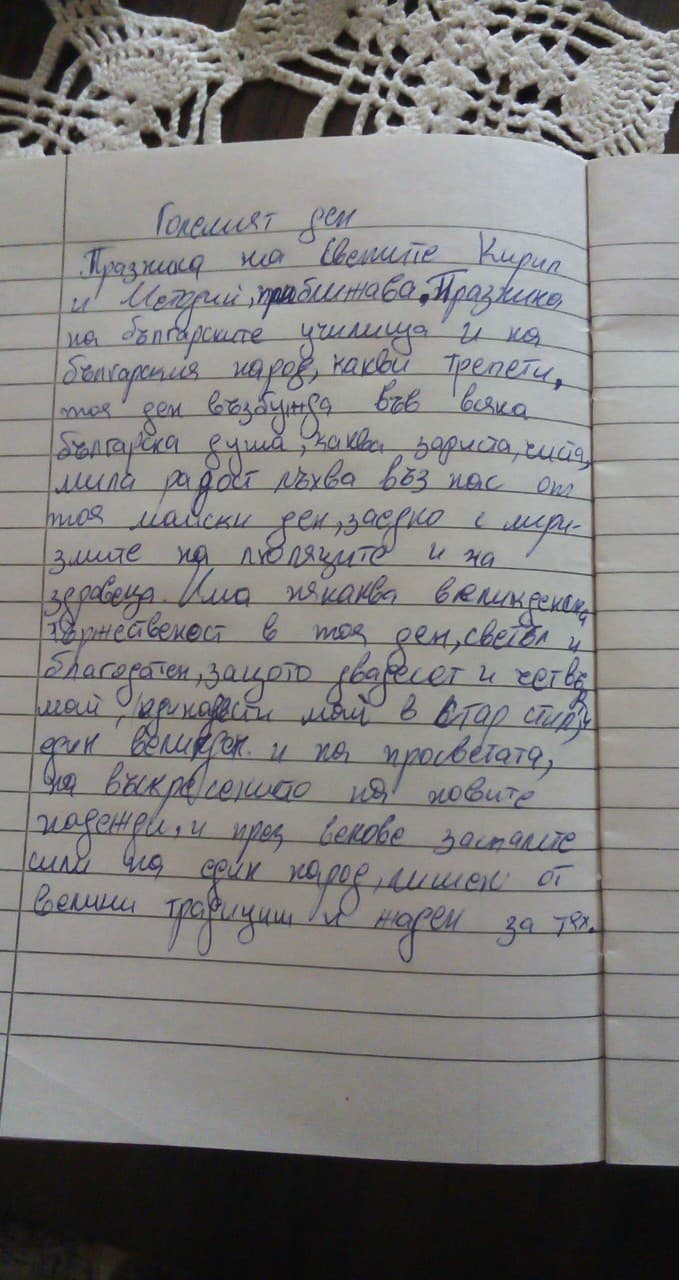 Големият ден
Празника на Светите Кирил
и Методий, приближава. Празника
на българските училища и на
българския народ, какви трепети,
тоя ден възбужда във всяка
българска душа, каква задиста, чиста,
мила радост лъхва въз нас от
тоя майски ден, заедно с мири-
змите на люляците и на
здравеца. Има някаква великденска
тържественост в тоя ден, светъл и
благодатен, защото двадесет и четвъ
май, единадести май в стар стил, и
един великден и на просветата,
на възкресението на новите
надежди, и през векове заспалите
сили на един народ, лишен от
велики традиции и жаден за тях.